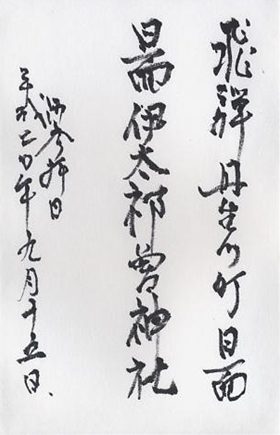 飛騨 丹生川町日面
日面伊太祁曽神社
御参拝日
平成二四年九月十五日